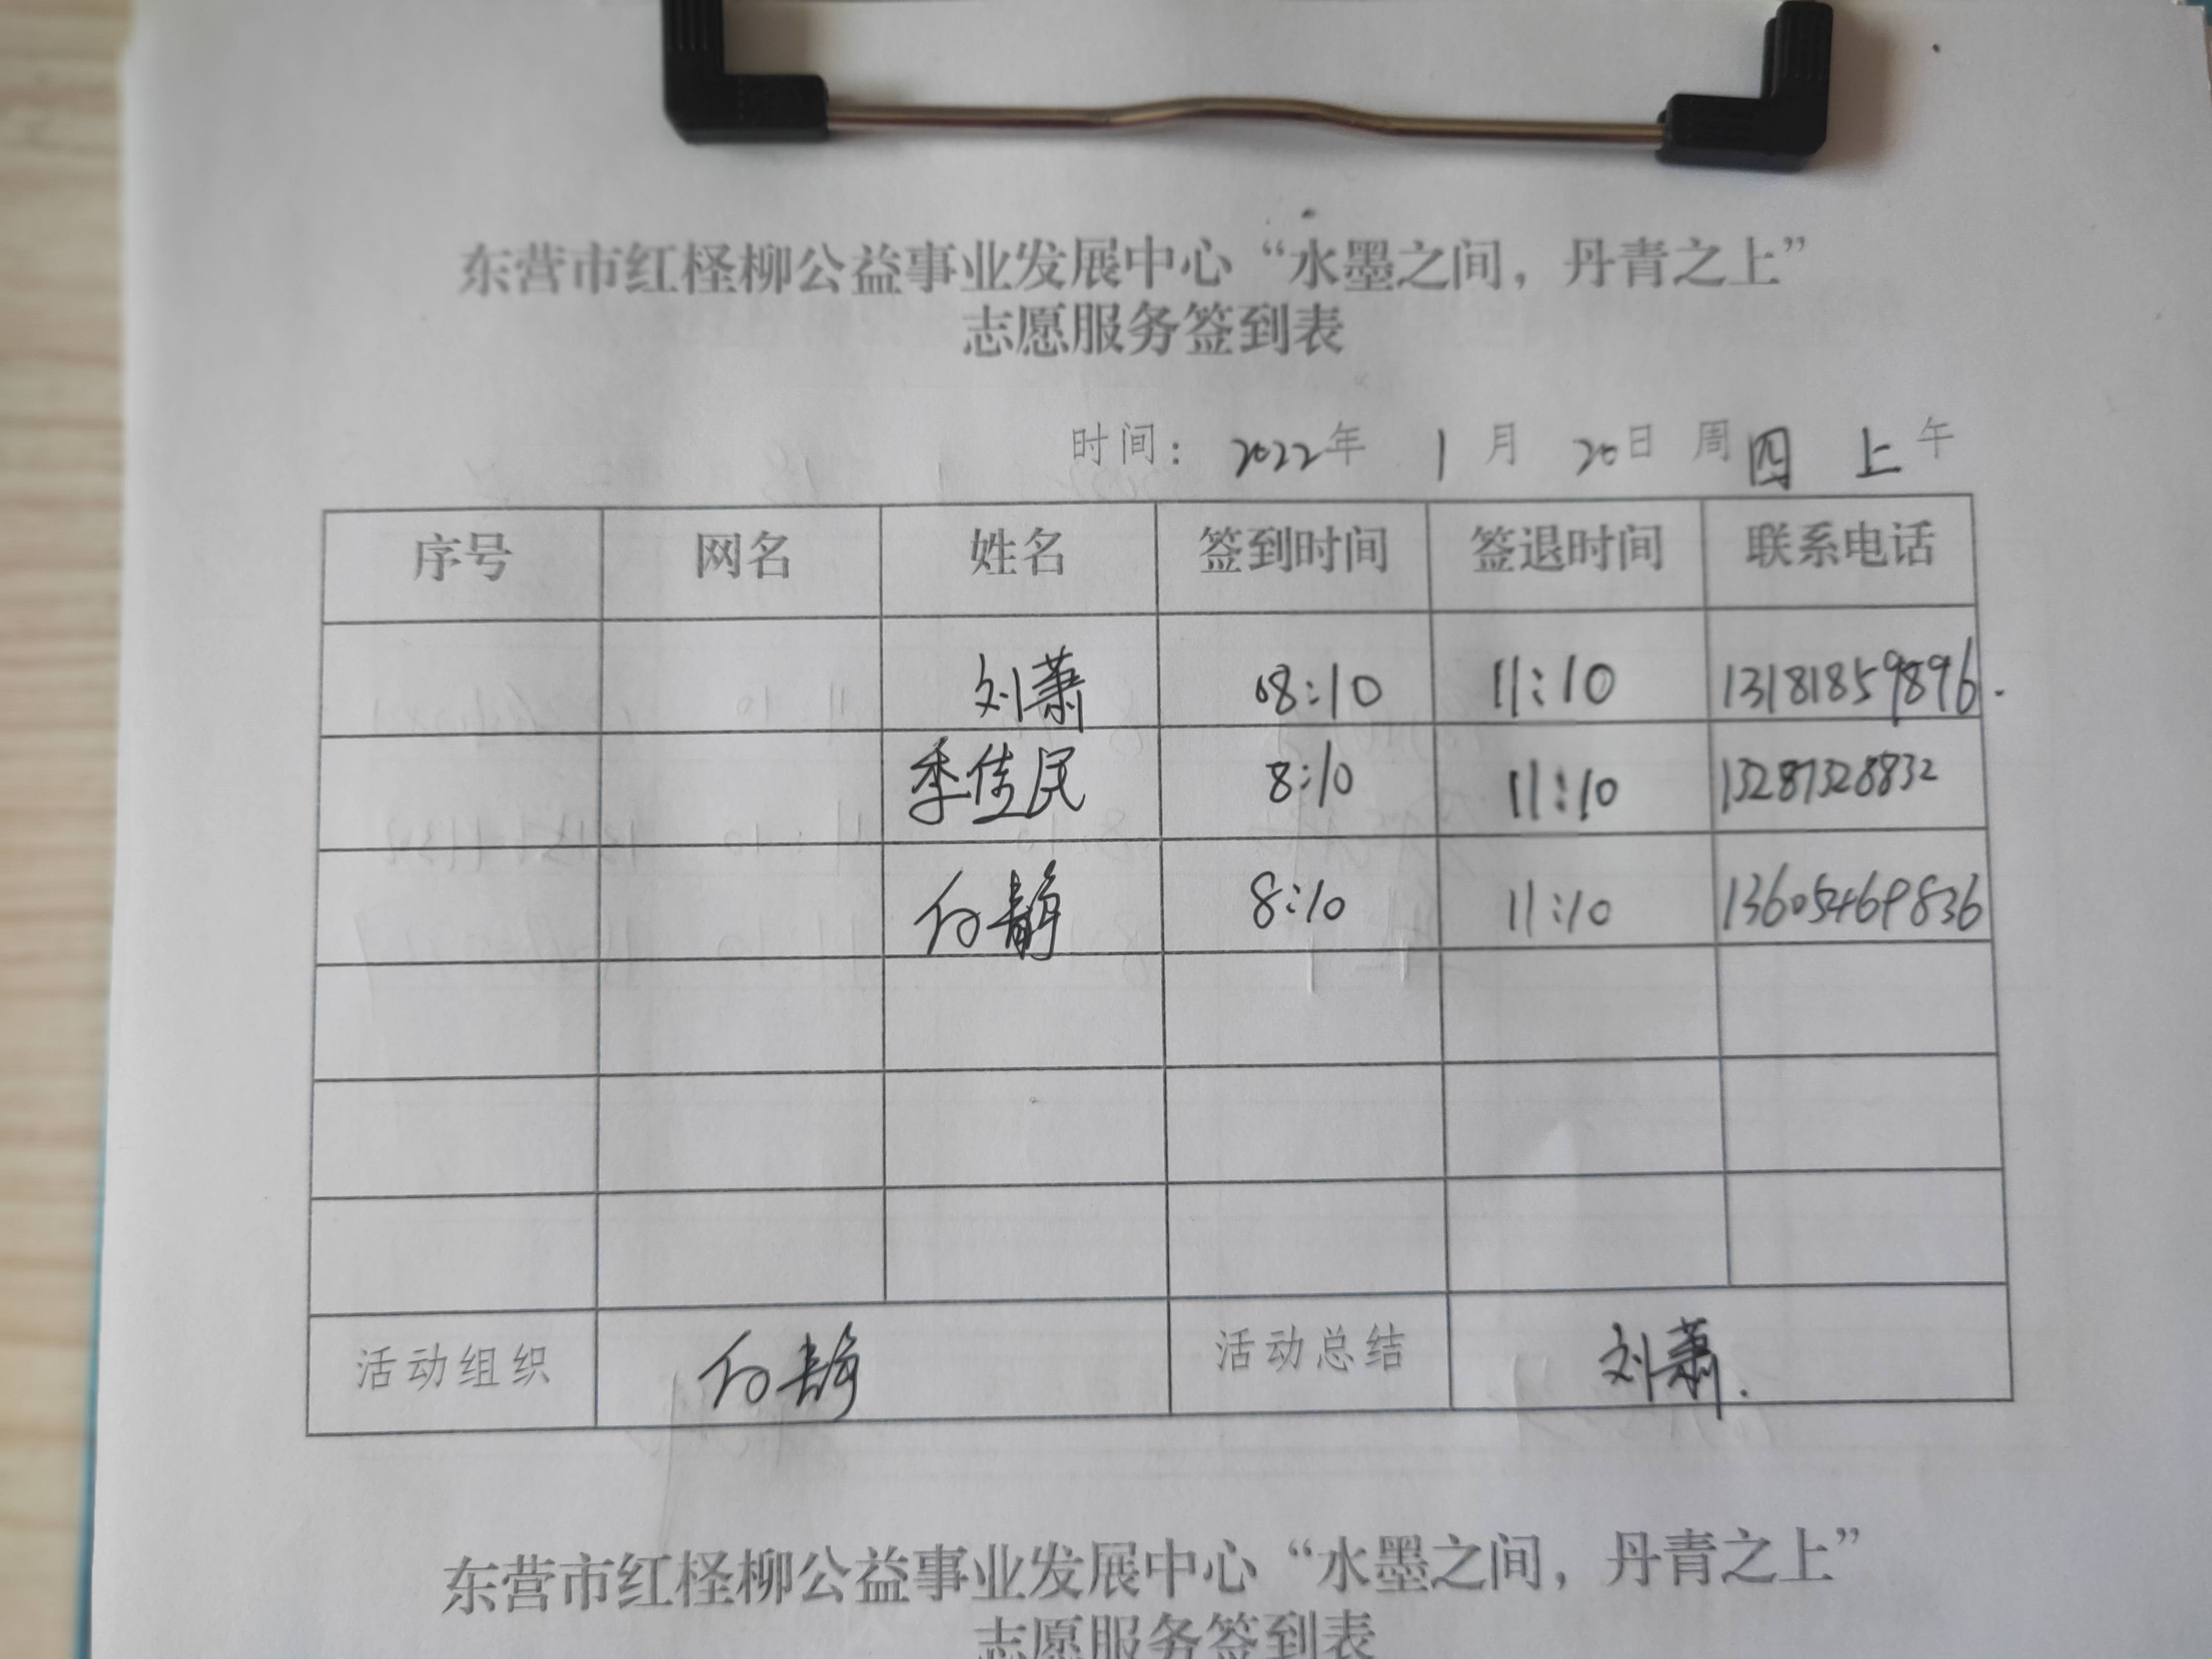 东营市红柽柳公益事业发展中心“水墨之间，丹青之上”
志愿服务签到表
时间：2022年 1月 20日 周四 上午
序号 网名 姓名 签到时间 签退时间 联系电话
刘萧 08:10 11:10 13181859896.
季佳民 8:10 11:10 13287328832
静 8:10 11:10 13605469836
活动组织 静 活动总结 刘萧.
东营市红柽柳公益事业发展中心“水墨之间，丹青之上”
志愿服务签到表